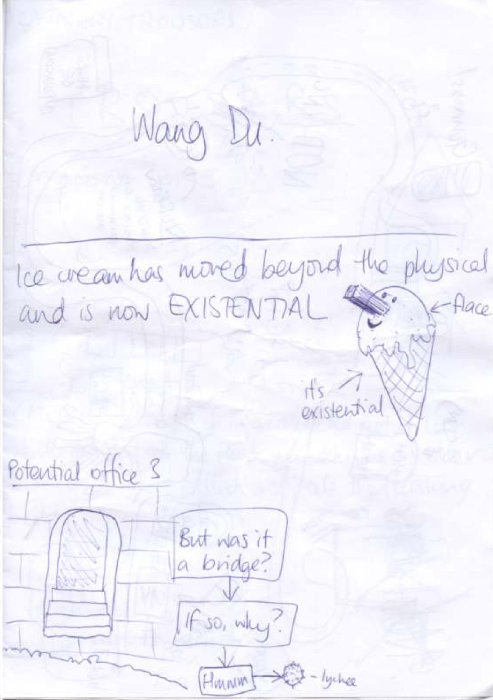 Wang Du.
Ice cream has moved beyond the physical
and is now EXISTENTIAL
it's
existential
Potential office 3
But was it
a bridge?
If so, why?
Hmmm
- lychee